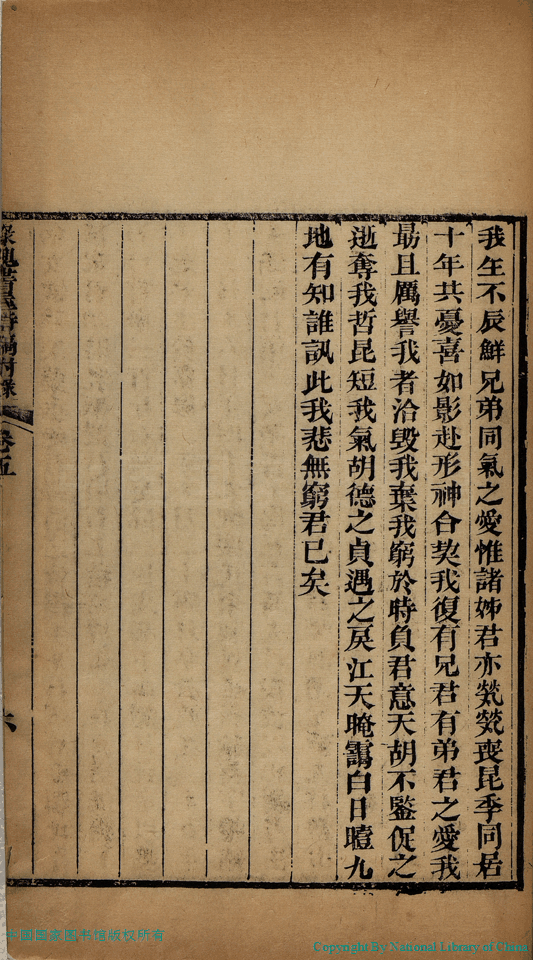 我生不辰鮮兄弟同氣之愛惟諸姊君亦煢煢喪昆季同居
十年共憂喜如影赴形神合契我復有兄君有弟君之愛我
最且厲譽我者洽毀我棄我窮於時負君意天胡不鑒促之
逝奪我哲昆短我氣胡德之貞遇之戾江天晻靄白日曀九
地有知誰訊此我悲無窮君已矣
卷五
六
中国国家图书馆版权所有
Copyright By National Library of China